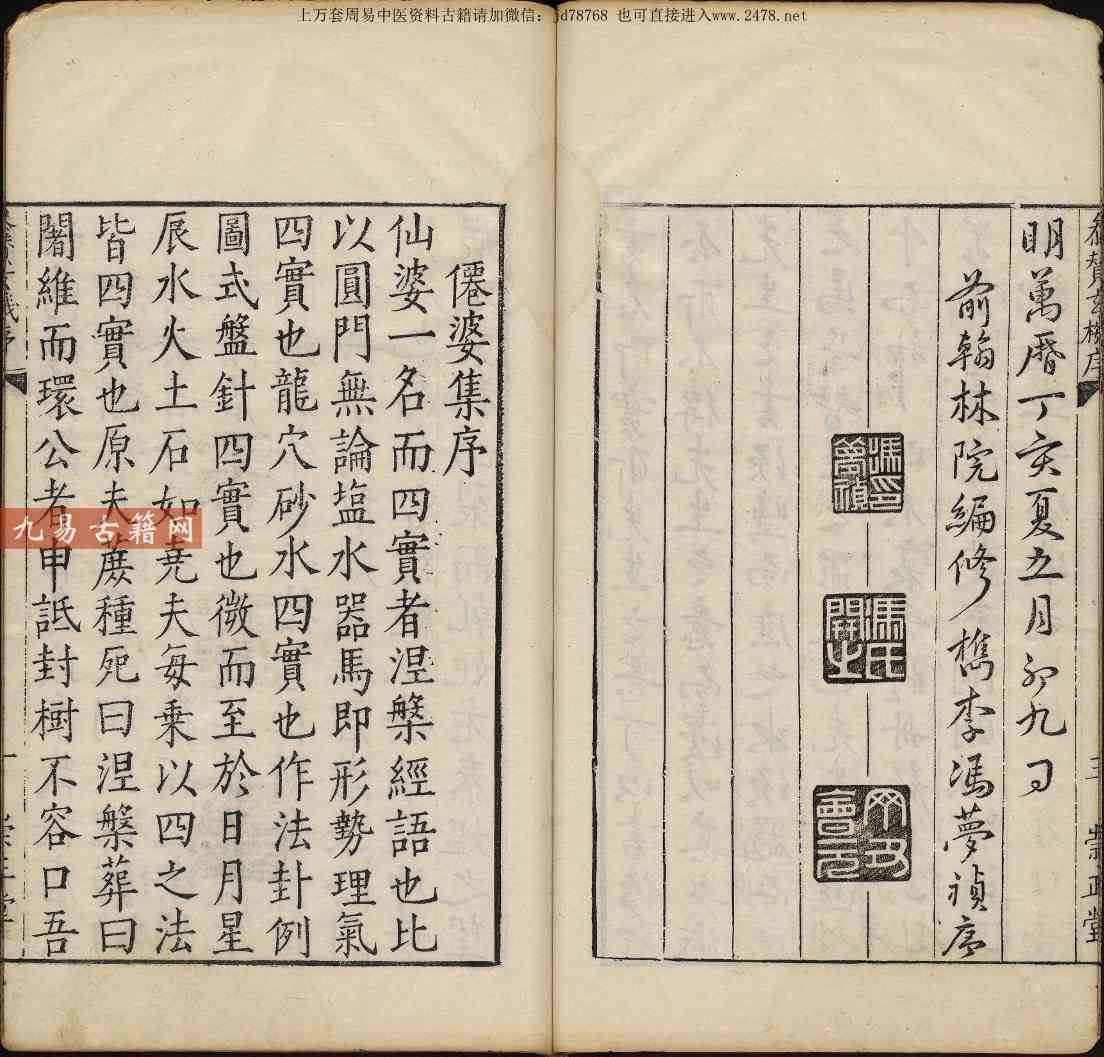 上万套周易中医资料古籍请加微信：jd78768 也可直接进入www.2478.net
明萬曆丁亥夏五月初九日
前翰林院編修檇李馮夢禎序
馮氏開之
會元
三 崇正堂
僊婆集序
仙婆一名而四實者涅槃經語也比
以圓門無論塩水器馬即形勢理氣
四實也龍穴砂水四實也作法卦例
圖式盤針四實也微而至於日月星
辰水火土石如堯夫每乘以四之法
皆四實也原夫蕨種死曰涅槃葬曰
闍維而環公者申詆封樹不容口吾
九易古籍网